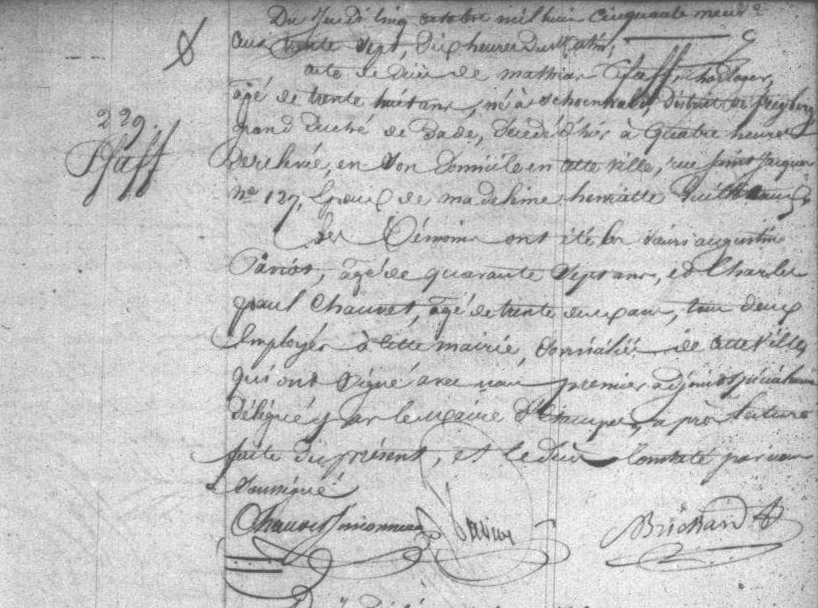 Du Jeudi Cinq octobre mil huit Cinquante neuf
aux trente Sept, Dix heures du Matin,
acte de décès de mathias Pfaff, horloger,
229. âgé de trente huit ans, né à district de freyberg
Pfaff grand Duché de Bade, décédé d'hier à quatre heures
De relevée, en Son Domicile en cette Ville, rue Saint Jacques
no 127, Epoux de madeleine henriette
Les Témoins ont été les Sieurs augustin
agé de quarante Sept ans, et Charles
paul Chauvet, agé de trente deux ans, tous deux
Employés à cette mairie, Domiciliés de cette Ville,
qui ont Signé avec nous premier adjoint spécialement
délégué par le maire d'Etampes, après lecture
faite du présent, et le décès Constaté par nous
Soussigné
Chauvet Brichard